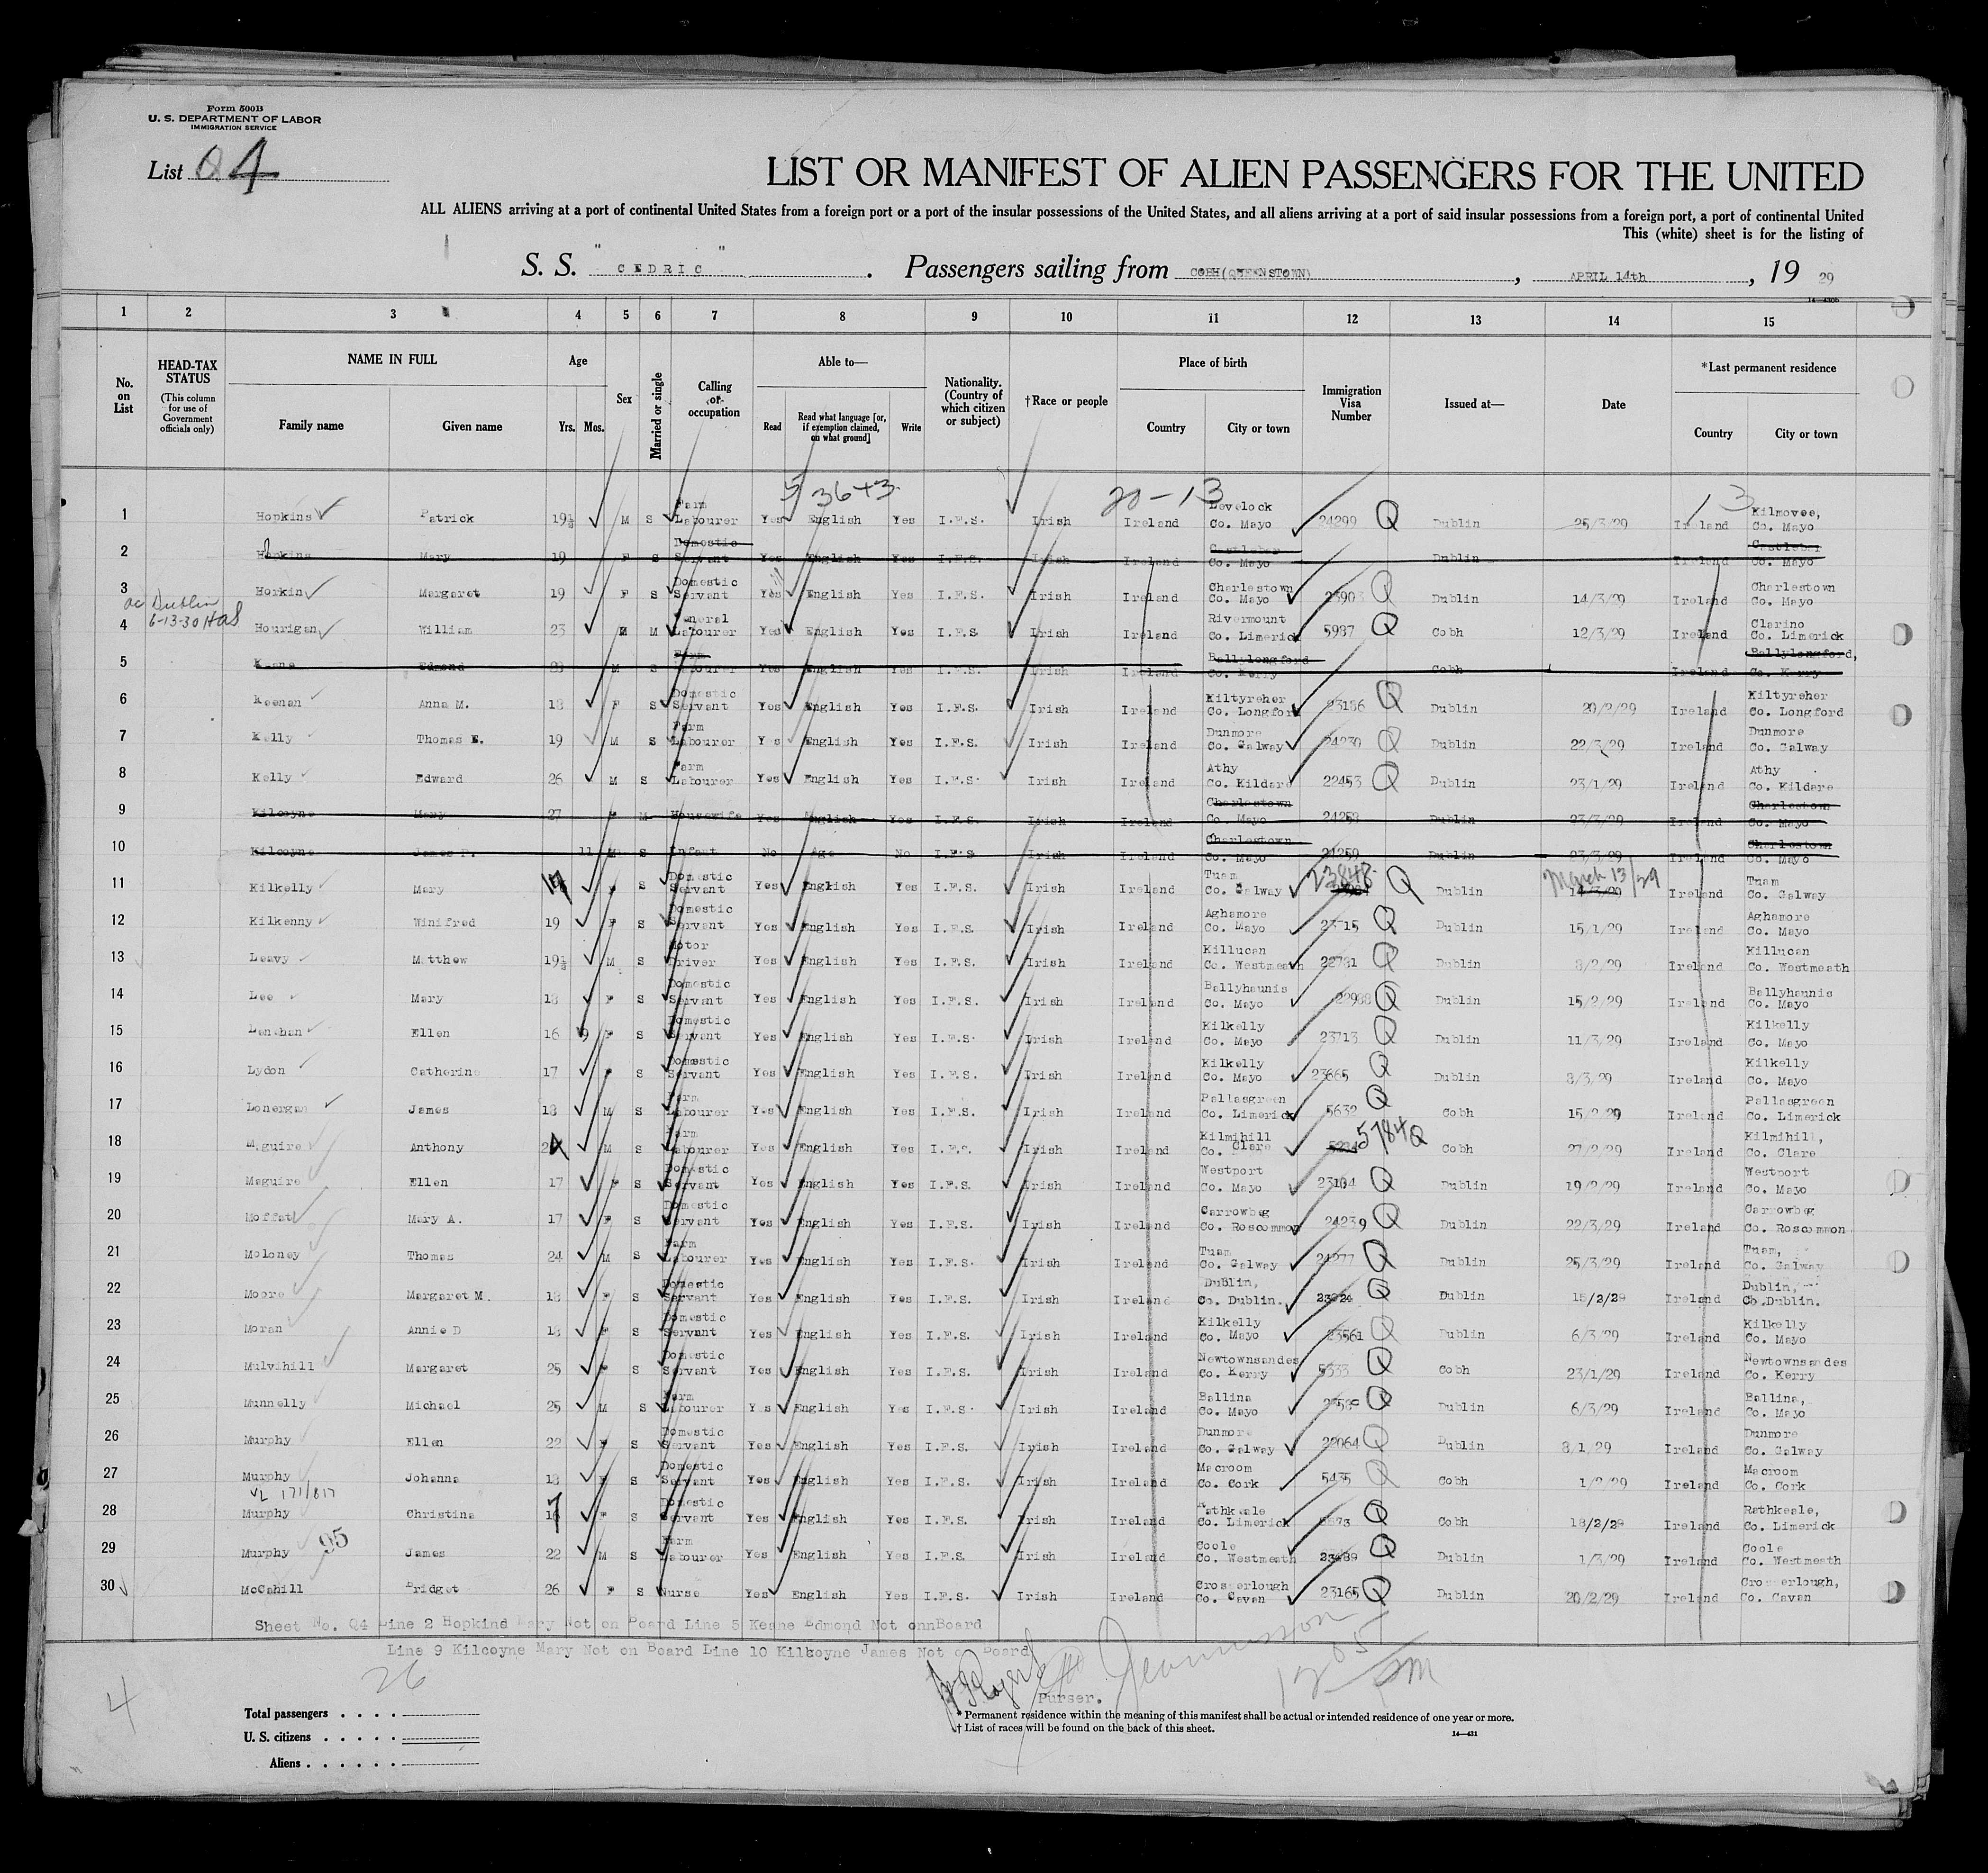 Form 500B
U. S. DEPARTMENT OF LABOR
IMMIGRATION SERVICE
List Q 4
LIST OR MANIFEST OF ALIEN PASSENGERS FOR THE UNITED
ALL ALIENS arriving at a port of continental United States from a foreign port or a port of the insular possessions of the United States, and all aliens arriving at a port of said insular possessions from a foreign port, a port of continental United
This (white) sheet is for the listing of
S. S. "CEDRIC" . Passengers sailing from COBH(QUEENSTOWN), APRIL 14th, 19 29
14—430b
1 2 3 4 5 6 7 8 9 10 11 12 13 14 15
No. on List
HEAD-TAX STATUS (This column for use of Government officials only)
NAME IN FULL Family name Given name
Age Yrs. Mos.
Sex
Married or single
Calling or occupation
Able to— Read Read what language [or, if exemption claimed, on what ground] Write
Nationality. (Country of which citizen or subject)
†Race or people
Place of birth Country City or town
Immigration Visa Number
Issued at—
Date
*Last permanent residence Country City or town
5 36+3 20-13 13
1 Hopkins Patrick 19½ M S Farm Labourer Yes English Yes I.F.S. Irish Ireland Levelock Co. Mayo 24299 Q Dublin 25/3/29 Ireland Kilmovee, Co. Mayo
2 Hopkins Mary 19 F S Domestic Servant Yes English Yes I.F.S. Irish Ireland Castlebar Co. Mayo Dublin Ireland Castlebar Co. Mayo
3 Horkin Margaret 19 F S Domestic Servant Yes English Yes I.F.S. Irish Ireland Charlestown Co. Mayo 23903 Q Dublin 14/3/29 Ireland Charlestown Co. Mayo
Dublin 6-13-30
4 Hourigan William 23 M M General Labourer Yes English Yes I.F.S. Irish Ireland Rivermount Co. Limerick 5987 Q Cobh 12/3/29 Ireland Clarino Co. Limerick
5 Keane Edmond 23 M S Farm Labourer Yes English Yes I.F.S. Irish Ireland Ballylongford Co. Kerry Cobh Ireland Ballylongford, Co. Kerry
6 Keenan Anna M. 18 F S Domestic Servant Yes English Yes I.F.S. Irish Ireland Kiltyreher Co. Longford 23186 Q Dublin 20/2/29 Ireland Kiltyreher Co. Longford
7 Kelly Thomas E. 19 M S Farm Labourer Yes English Yes I.F.S. Irish Ireland Dunmore Co. Galway 24230 Q Dublin 22/3/29 Ireland Dunmore Co. Galway
8 Kelly Edward 26 M S Farm Labourer Yes English Yes I.F.S. Irish Ireland Athy Co. Kildare 22453 Q Dublin 23/1/29 Ireland Athy Co. Kildare
9 Kilcoyne Mary 27 F M Housewife Yes English Yes I.F.S. Irish Ireland Charlestown Co. Mayo 24258 Dublin 23/3/29 Ireland Charlestown Co. Mayo
10 Kilcoyne James P. 11 M S Infant No Age No I.F.S Irish Ireland Charlestown Co. Mayo 24259 Dublin 23/3/29 Ireland Charlestown Co. Mayo
11 Kilkelly Mary F S Domestic Servant Yes English Yes I.F.S. Irish Ireland Tuam Co. Galway 23848 Q Dublin March 13/29 14/3/29 Ireland Tuam Co. Galway
12 Kilkenny Winifred 19 F S Domestic Servant Yes English Yes I.F.S. Irish Ireland Aghamore Co. Mayo 23715 Q Dublin 15/1/29 Ireland Aghamore Co. Mayo
13 Leavy Matthew 19½ M S Motor Driver Yes English Yes I.F.S. Irish Ireland Killucan Co. Westmeath 22781 Q Dublin 8/2/29 Ireland Killucan Co. Westmeath
14 Lee Mary 18 F S Domestic Servant Yes English Yes I.F.S. Irish Ireland Ballyhaunis Co. Mayo 22988 Q Dublin 15/2/29 Ireland Ballyhaunis Co. Mayo
15 Lenehan Ellen 16 9 F S Domestic Servant Yes English Yes I.F.S. Irish Ireland Kilkelly Co. Mayo 23713 Q Dublin 11/3/29 Ireland Kilkelly Co. Mayo
16 Lydon Catherine 17 F S Domestic Servant Yes English Yes I.F.S. Irish Ireland Kilkelly Co. Mayo 23665 Q Dublin 8/3/29 Ireland Kilkelly Co. Mayo
17 Lonergan James 18 M S Farm Labourer Yes English Yes I.F.S. Irish Ireland Pallasgreen Co. Limerick 5632 Q Cobh 15/2/29 Ireland Pallasgreen Co. Limerick
18 Maguire Anthony 24 M S Farm Labourer Yes English Yes I.F.S. Irish Ireland Kilmihill Co. Clare 5784 Q Cobh 27/2/29 Ireland Kilmihill, Co. Clare
19 Maguire Ellen 17 F S Domestic Servant Yes English Yes I.F.S. Irish Ireland Westport Co. Mayo 23184 Q Dublin 19/2/29 Ireland Westport Co. Mayo
20 Moffat Mary A. 17 F S Domestic Servant Yes English Yes I.F.S. Irish Ireland Carrowbeg Co. Roscommon 24239 Q Dublin 22/3/29 Ireland Carrowbeg Co. Roscommon
21 Moloney Thomas 24 M S Farm Labourer Yes English Yes I.F.S. Irish Ireland Tuam Co. Galway 24277 Q Dublin 25/3/29 Ireland Tuam, Co. Galway
22 Moore Margaret M. 18 F S Domestic Servant Yes English Yes I.F.S. Irish Ireland Dublin, Co. Dublin. Q Dublin 15/2/29 Ireland Dublin, Co.Dublin.
23 Moran Annie D 18 F S Domestic Servant Yes English Yes I.F.S. Irish Ireland Kilkelly Co. Mayo 23561 Q Dublin 6/3/29 Ireland Kilkelly Co. Mayo
24 Mulvihill Margaret 25 F S Domestic Servant Yes English Yes I.F.S. Irish Ireland Newtownsandes Co. Kerry 5333 Q Cobh 23/1/29 Ireland Newtownsandes Co. Kerry
25 Munnelly Michael 25 M S Farm Labourer Yes English Yes I.F.S. Irish Ireland Ballina Co. Mayo Q Dublin 6/3/29 Ireland Ballina, Co. Mayo
26 Murphy Ellen 22 F S Domestic Servant Yes English Yes I.F.S. Irish Ireland Dunmore Co. Galway 22064 Q Dublin 8/1/29 Ireland Dunmore Co. Galway
27 Murphy Johanna 18 F S Domestic Servant Yes English Yes I.F.S. Irish Ireland Macroom Co. Cork 5435 Q Cobh 1/2/29 Ireland Macroom Co. Cork
VL 171/817
28 Murphy Christina F S Domestic Servant Yes English Yes I.F.S. Irish Ireland Rathkeale Co. Limerick Q Cobh 18/2/29 Ireland Rathkeale, Co. Limerick
29 Murphy 95 James 22 M S Farm Labourer Yes English Yes I.F.S. Irish Ireland Coole Co. Westmeath 23489 Q Dublin 1/3/29 Ireland Coole Co. Westmeath
30 McCahill Bridget 26 F S Nurse Yes English Yes I.F.S. Irish Ireland Crosserlough Co. Cavan 23165 Q Dublin 20/2/29 Ireland Crosserlough, Co. Cavan
Sheet No. Q4 Line 2 Hopkins Mary Not on Board Line 5 Keane Edmond Not onnBoard
Line 9 Kilcoyne Mary Not on Board Line 10 Kilcoyne James Not on Board
4 26
Purser.
12 05 PM
Total passengers . . . .
U. S. citizens . . . . .
Aliens . . . . . .
* Permanent residence within the meaning of this manifest shall be actual or intended residence of one year or more.
† List of races will be found on the back of this sheet.
14—431